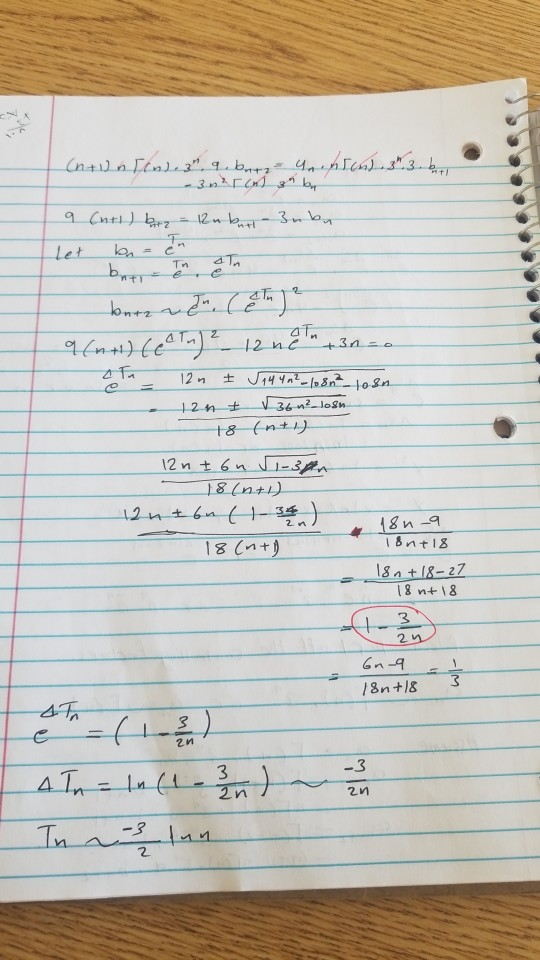 (n+1) n Γ(n) · 3^n · 9 · b_{n+2} = 4n · n Γ(n) · 3^n · 3 · b_{n+1}
- 3n^2 Γ(n) 3^n b_n
9 (n+1) b_{n+2} = 12n b_{n+1} - 3n b_n
Let b_n = e^{T_n}
b_{n+1} = e^{T_n} · e^{ΔT_n}
b_{n+2} ~ e^{T_n} · (e^{ΔT_n})^2
9(n+1)(e^{ΔT_n})^2 - 12 n e^{ΔT_n} + 3n = 0
e^{ΔT_n} = 12n ± √(144n^2 - 108n^2 - 108n)
= (12n ± √(36n^2 - 108n)) / (18 (n+1))
(12n ± 6n √(1 - 3/n)) / (18(n+1))
(12n ± 6n (1 - 3/2n)) / (18(n+1))
(18n - 9) / (18n + 18)
= (18n + 18 - 27) / (18n + 18)
= 1 - 3/2n
= (6n - 9) / (18n + 18) = 1/3
e^{ΔT_n} = (1 - 3/2n)
ΔT_n = ln(1 - 3/2n) ~ -3/2n
T_n ~ -3/2 ln n